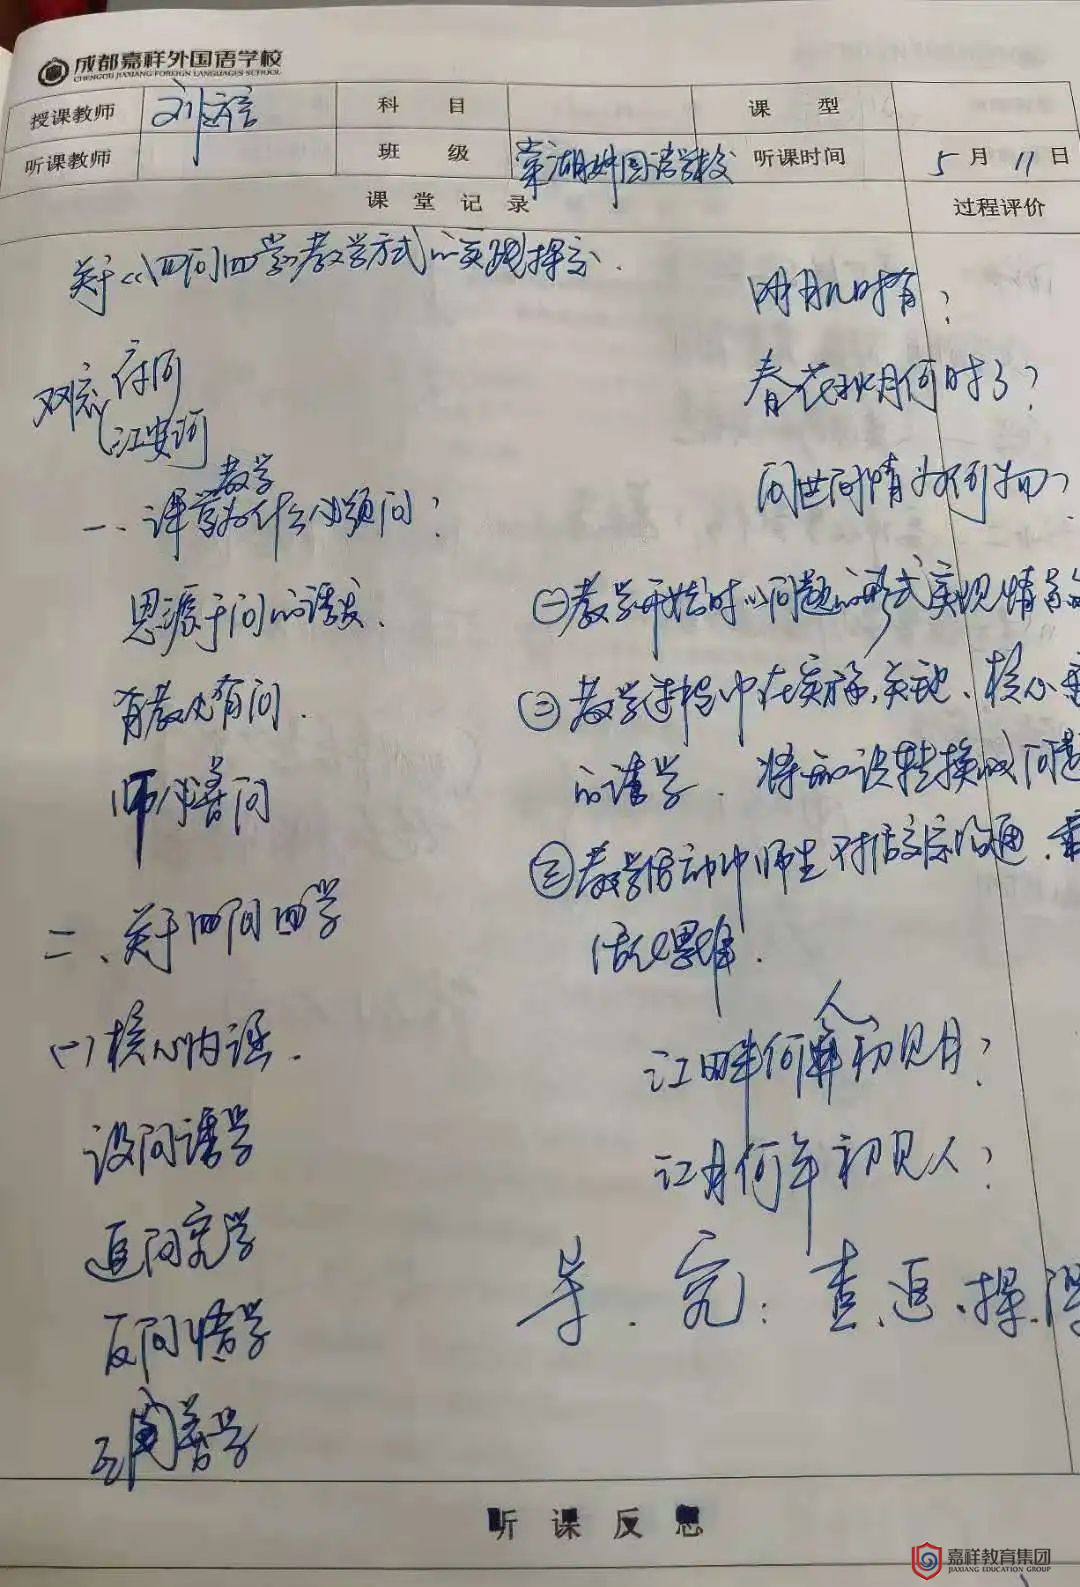 成都嘉祥外国语学校
CHENGDU JIAXIANG FOREIGN LANGUAGES SCHOOL
授课教师 刘 科目 课型
听课教师 班级 棠湖外国语学校 听课时间 5月11日
课堂记录 过程评价
关于《四问四学》教学方式的实践探索.
双流 府河
江安河
教学
一、课堂为什么必须问?
思源于问的诱发.
有教必有问.
师必善问
二、关于四问四学
(一)核心内涵.
设问诱学
追问究学
反问悟学
互问善学
明月几时有?
春花秋月何时了?
问世间情为何物?
㊀教学开始时以问题的形式实现情景的
㊁教学过程中在实施,实地、核心
的诱学.将知识转换成问题
㊂教学活动中师生对话交流沟通.
活化思维.
江畔何人初见月?
江月何年初见人?
导.究:查、追、探.
听课反思
嘉祥教育集团
JIAXIANG EDUCATION GROUP